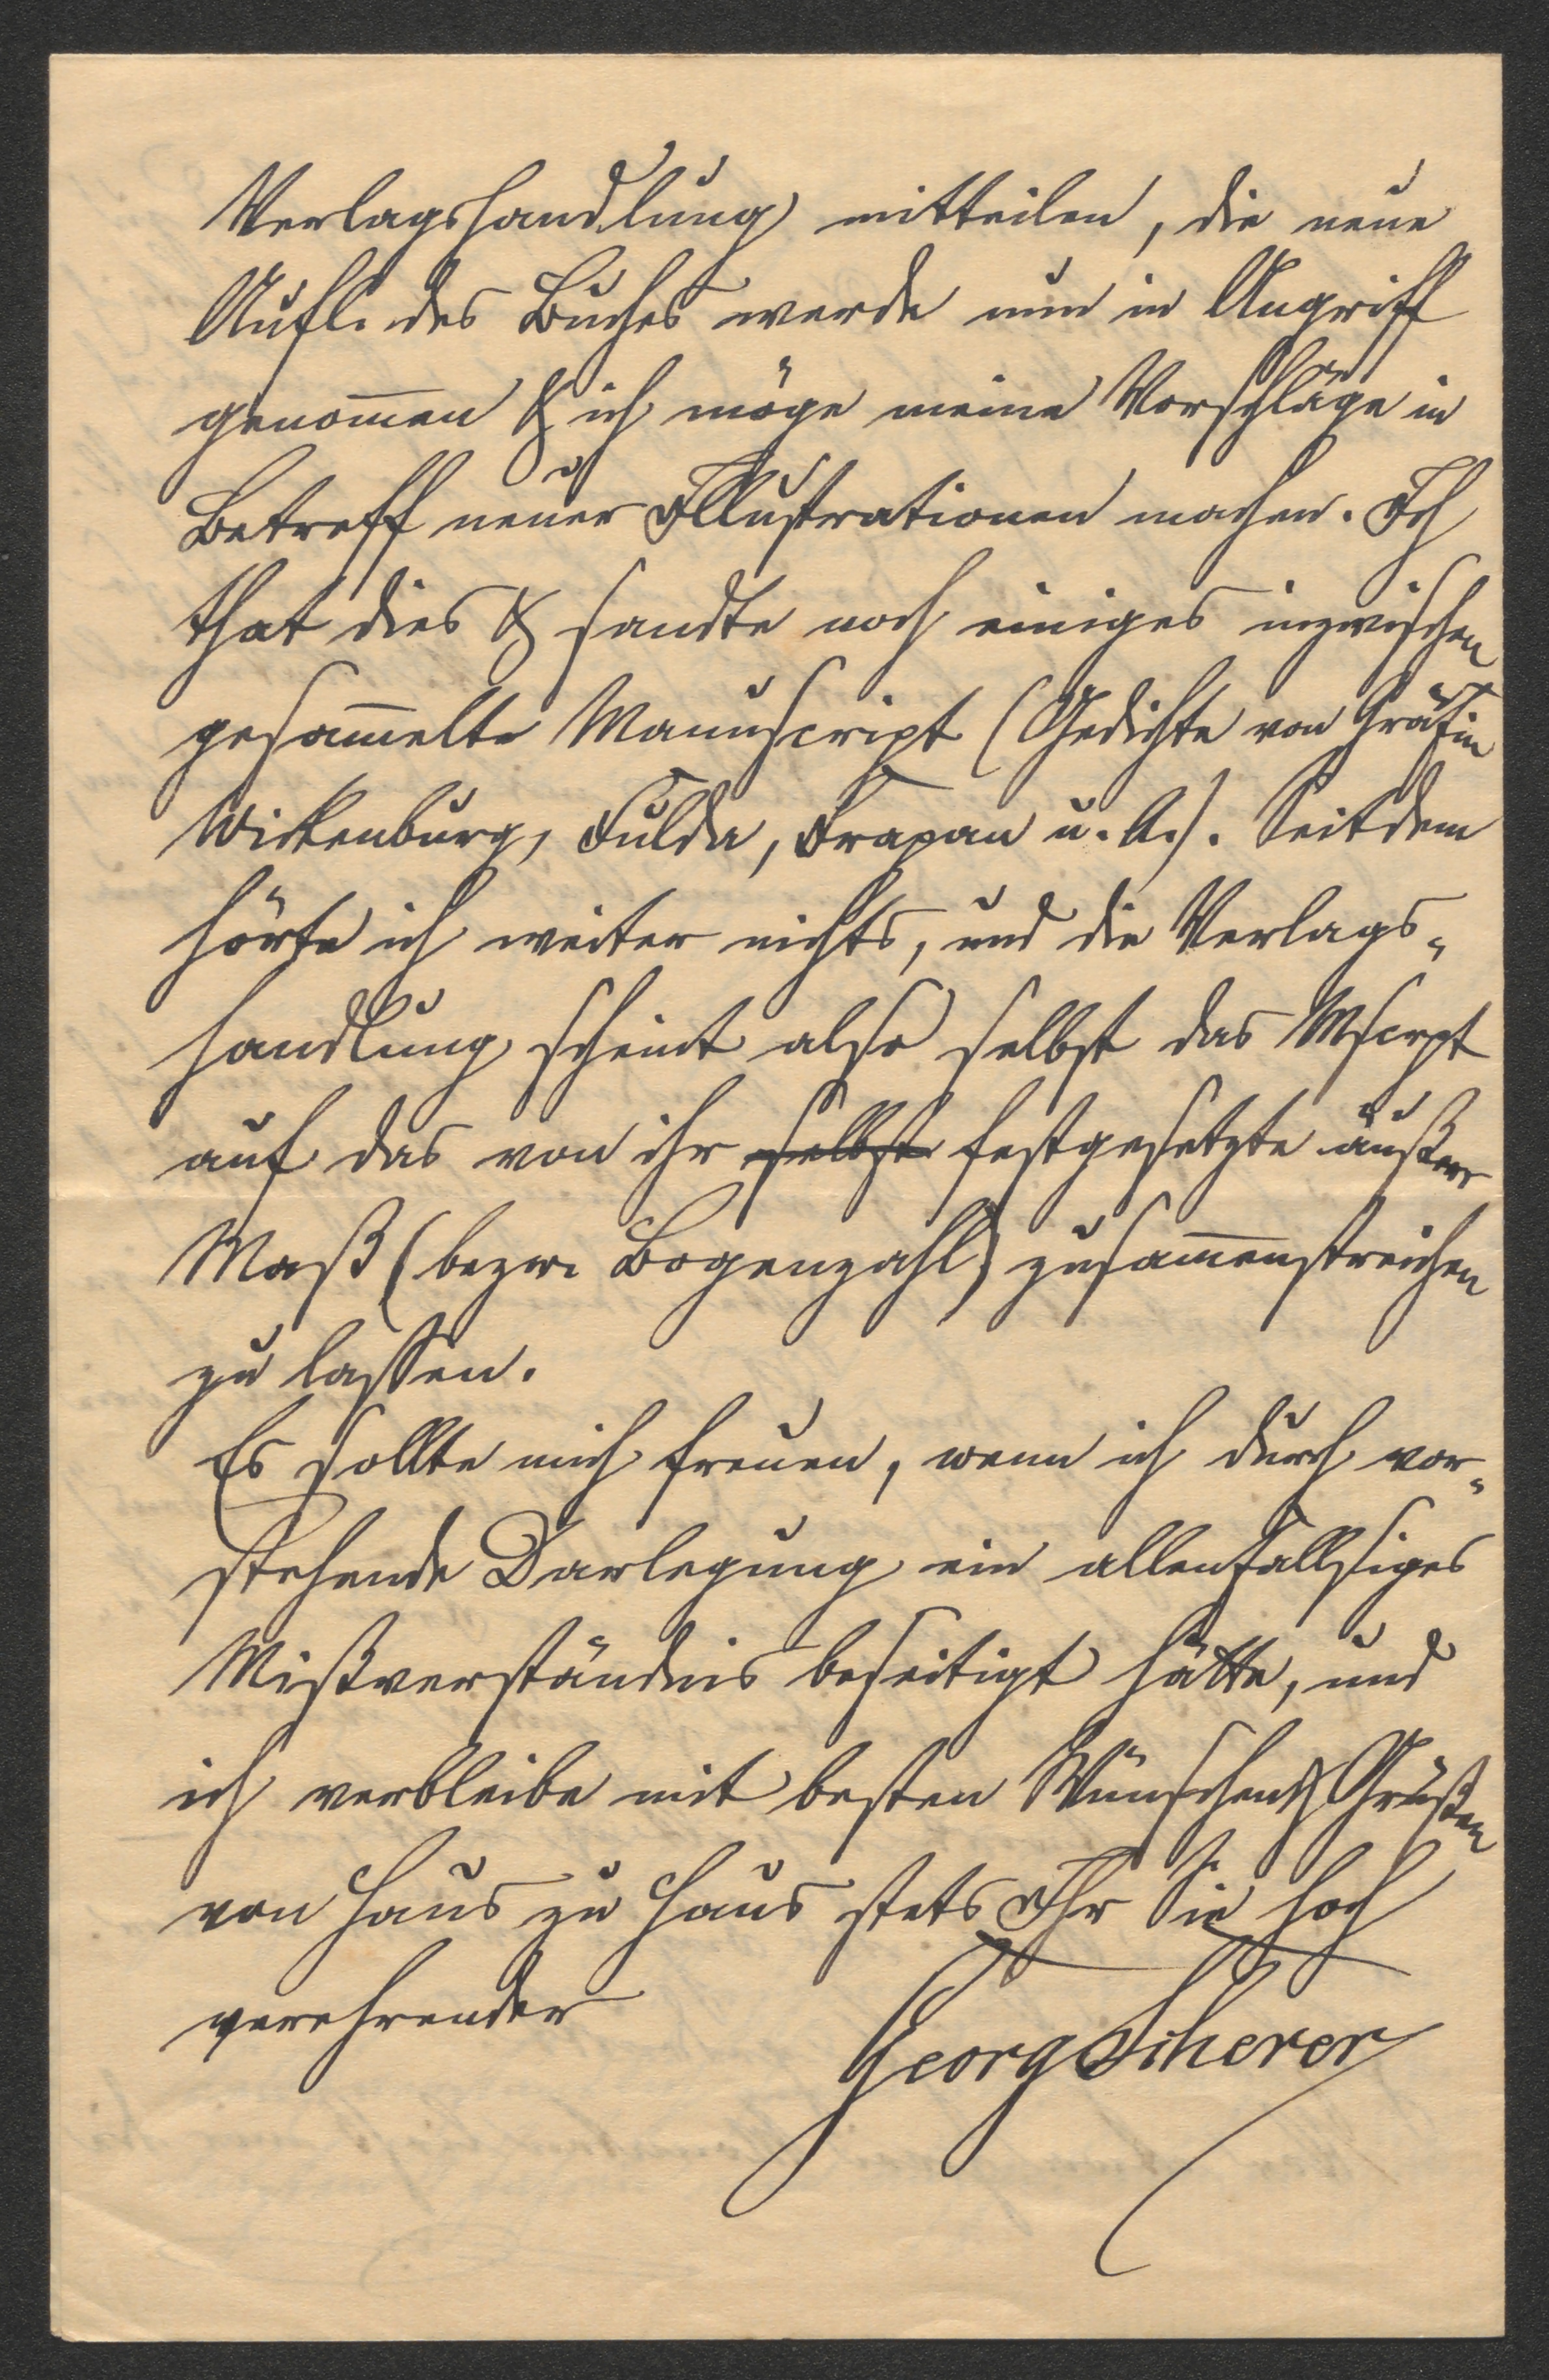 Verlagshandlung mitteilen, die neue
Aufl. des Buches werde nun in Angriff
genom̄en & ich möge meine Vorschläge in
Betreff neuer Illustrationen machen. Ich
that dies & sandte noch einiges inzwischen
gesam̄elte Manuscript (Gedichte von Gräfin
Wickenburg, Fulda, Frapan u. A.). Seitdem
hörte ich weiter nichts, und die Verlags-
handlung scheint also selbst das Mscrpt
auf das von ihr selbst festgesetzte äußere
Maß (bezw. Bogenzahl) zusam̄enstreichen
zu lassen.
Es sollte mich freuen, wenn ich durch vor-
stehende Darlegung ein allenfallsiges
Mißverständnis beseitigt hätte, und
ich verbleibe mit besten Wünschen & Grüßen
von Haus zu Haus stets Ihr Sie hoch
verehrender
Georg Scherer